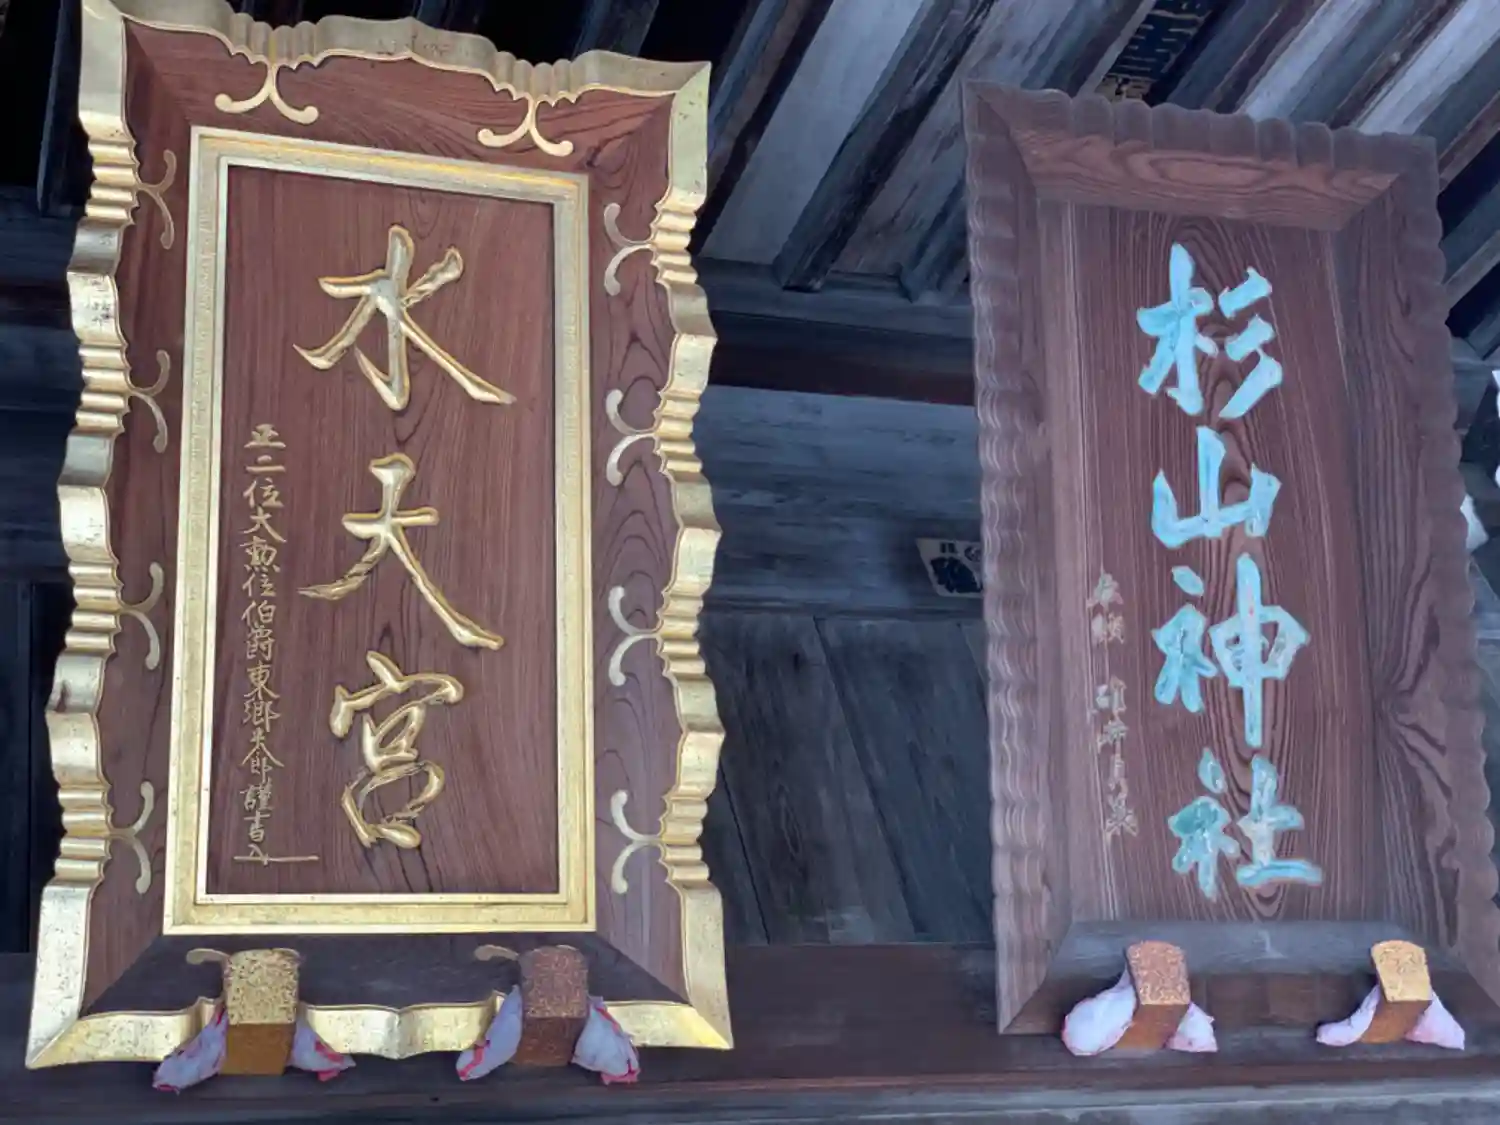 水天宮
正二位大勲位伯爵東郷平八郎謹書
杉山神社